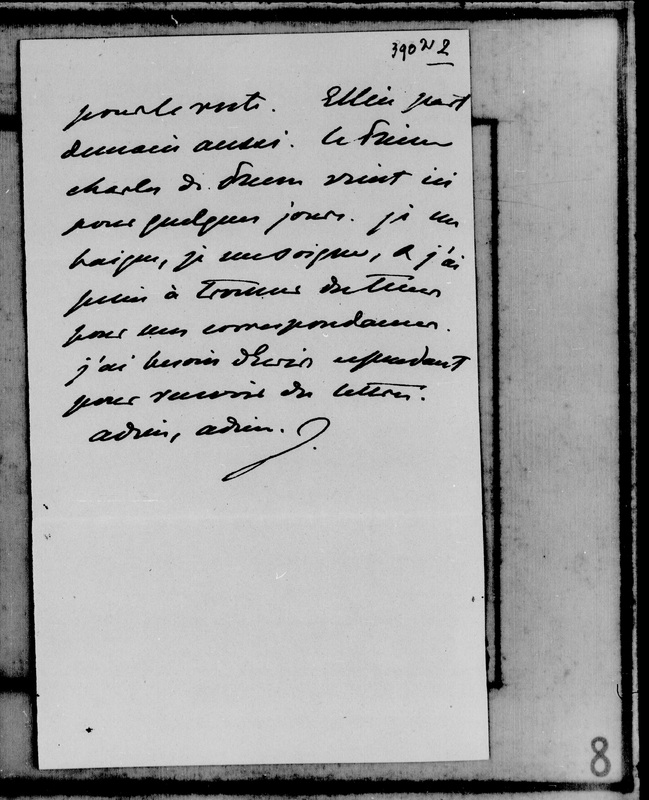 390 2
pour le reste. Ellice part
demain aussi. le Prince
charles de Prusse vient ici
pour quelques jours. je me
baigne, je me soigne, & j'ai
peine à trouver du tems
pour mes correspondances.
j'ai besoin d'écrire cependant
pour recevoir des lettres.
adieu, adieu.
8